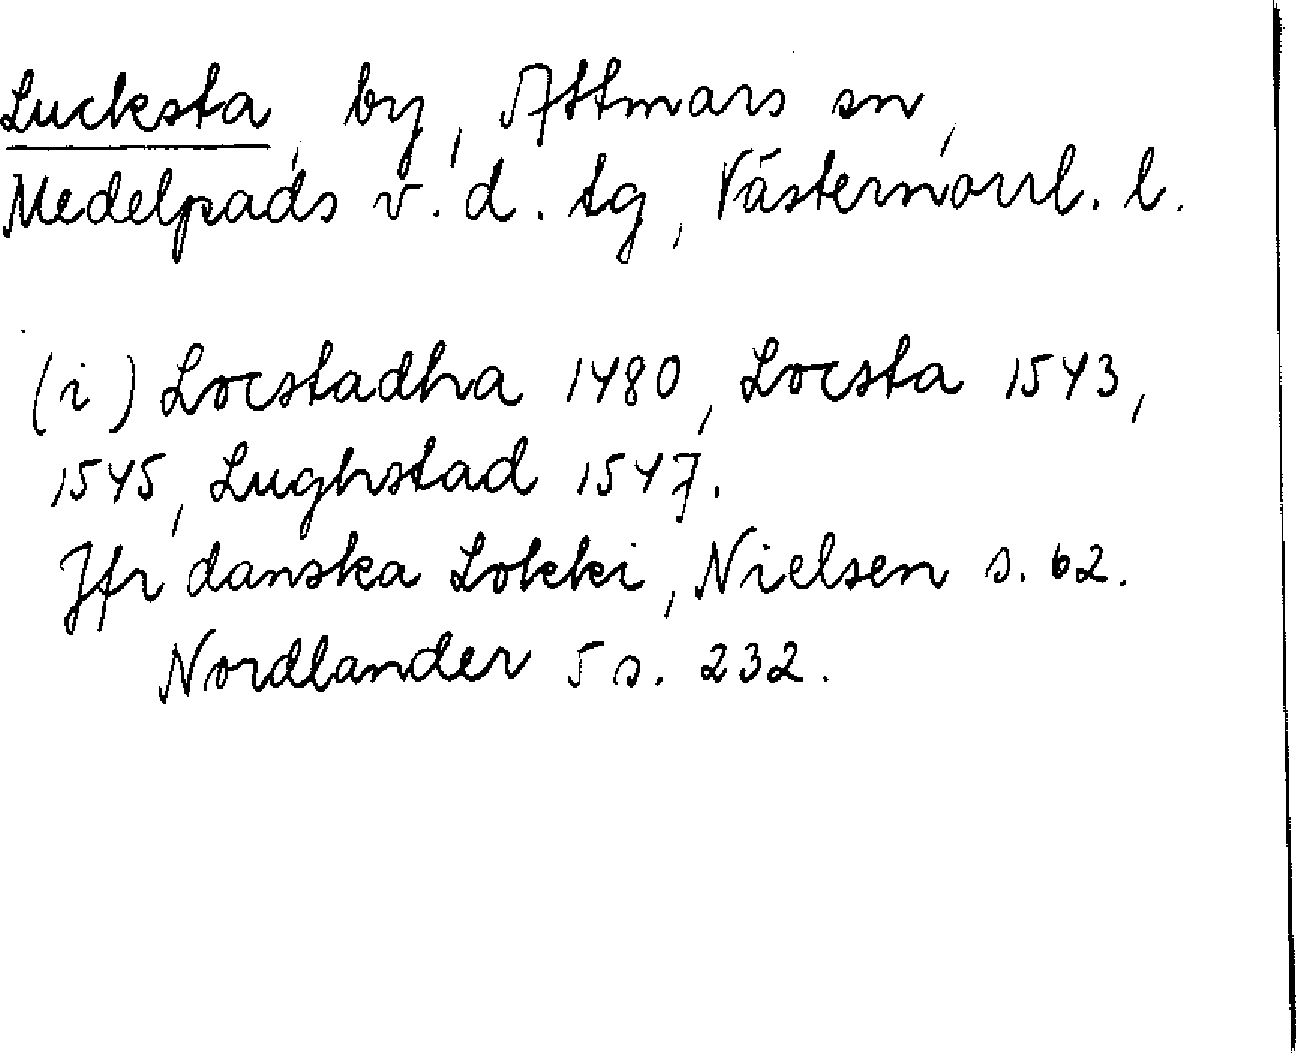 Lucksta, by, Attmars sn,
Medelpads v. d. tg, Västernorrl. l.
(i) Locstadha 1480, Locsta 1543,
1545, Lughstad 1547.
Jfr danska Lokki, Nielsen s. 62.
Nordlander 5 s. 232.